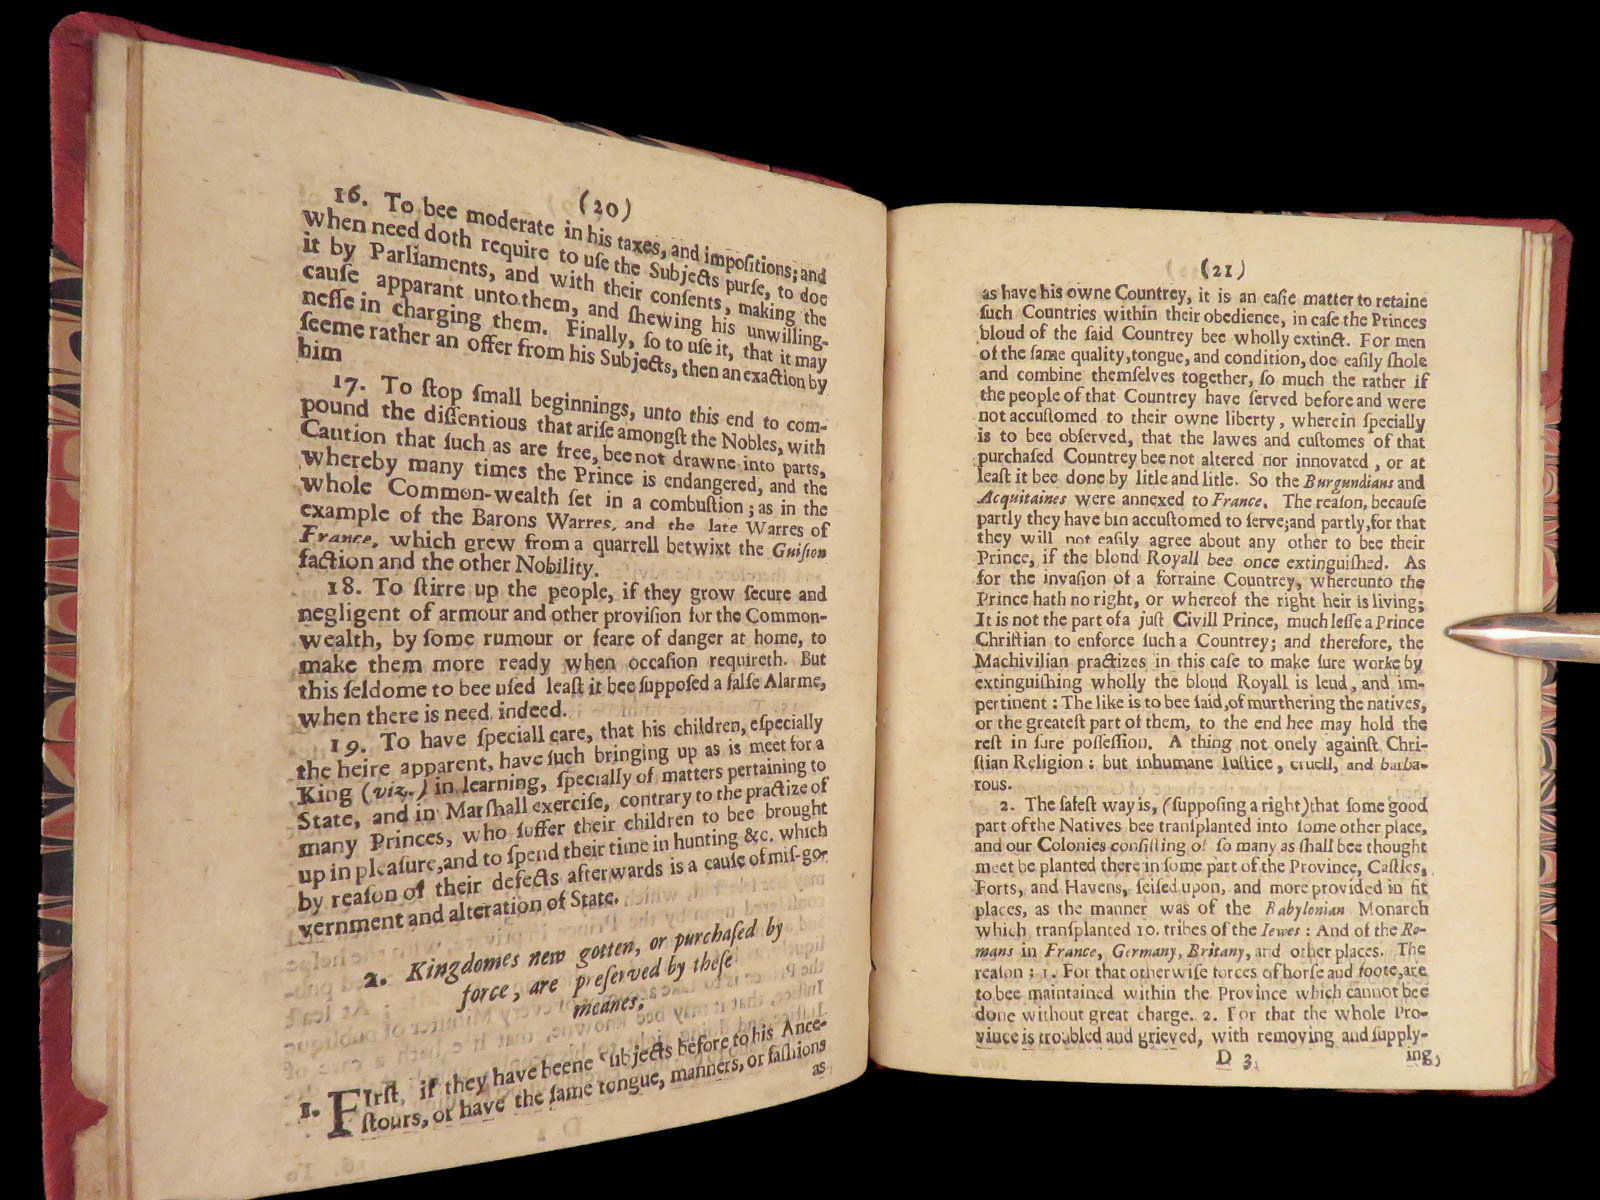 (20)
16. To bee moderate in his taxes, and impoſitions; and
when need doth require to uſe the Subjects purſe, to doe
it by Parliaments, and with their conſents, making the
cauſe apparant unto them, and ſhewing his unwilling-
neſſe in charging them. Finally, ſo to uſe it, that it may
ſeeme rather an offer from his Subjects, then an exaction by
him
17. To ſtop ſmall beginnings, unto this end to com-
pound the diſſentious that ariſe amongſt the Nobles, with
Caution that ſuch as are free, bee not drawne into parts,
whereby many times the Prince is endangered, and the
whole Common-wealth ſet in a combuſtion; as in the
example of the Barons Warres, and the late Warres of
France, which grew from a quarrell betwixt the Guiſion
faction and the other Nobility.
18. To ſtirre up the people, if they grow ſecure and
negligent of armour and other proviſion for the Common-
wealth, by ſome rumour or feare of danger at home, to
make them more ready when occaſion requireth. But
this ſeldome to bee uſed leaſt it bee ſuppoſed a falſe Alarme,
when there is need indeed.
19. To have ſpeciall care, that his children, eſpecially
the heire apparent, have ſuch bringing up as is meet for a
King (viz.) in learning, ſpecially of matters pertaining to
State, and in Marſhall exerciſe, contrary to the practize of
many Princes, who ſuffer their children to bee brought
up in pleaſure, and to ſpend their time in hunting &c. which
by reaſon of their defects afterwards is a cauſe of miſ-go-
vernment and alteration of State.
2. Kingdomes new gotten, or purchaſed by
force, are preſerved by theſe
meanes.
1. FIrſt, if they have beene Subjects before to his Ance-
ſtours, or have the ſame tongue, manners, or faſhions
as
(21)
as have his owne Countrey, it is an eaſie matter to retaine
ſuch Countries within their obedience, in caſe the Princes
bloud of the ſaid Countrey bee wholly extinct. For men
of the ſame quality, tongue, and condition, doe eaſily ſhole
and combine themſelves together, ſo much the rather if
the people of that Countrey have ſerved before and were
not accuſtomed to their owne liberty, wherein ſpecially
is to bee obſerved, that the lawes and cuſtomes of that
purchaſed Countrey bee not altered nor innovated, or at
leaſt it bee done by litle and litle. So the Burgundians and
Acquitaines were annexed to France. The reaſon, becauſe
partly they have bin accuſtomed to ſerve; and partly, for that
they will not eaſily agree about any other to bee their
Prince, if the blond Royall bee once extinguiſhed. As
for the invaſion of a forraine Countrey, whereunto the
Prince hath no right, or whereof the right heir is living;
It is not the part of a juſt Civill Prince, much leſſe a Prince
Chriſtian to enforce ſuch a Countrey; and therefore, the
Machivilian practizes in this caſe to make ſure worke by
extinguiſhing wholly the bloud Royall is leud, and im-
pertinent: The like is to bee ſaid, of murthering the natives,
or the greateſt part of them, to the end hee may hold the
reſt in ſure poſſeſſion. A thing not onely againſt Chri-
ſtian Religion: but inhumane Juſtice, cruell, and barba-
rous.
2. The ſafeſt way is, (ſuppoſing a right) that ſome good
part of the Natives bee tranſplanted into ſome other place,
and our Colonies conſiſting of ſo many as ſhall bee thought
meet be planted there in ſome part of the Province, Caſtles,
Forts, and Havens, ſeiſed upon, and more provided in fit
places, as the manner was of the Babylonian Monarch
which tranſplanted 10. tribes of the Iewes: And of the Ro-
mans in France, Germany, Britany, and other places. The
reaſon: 1. For that otherwiſe forces of horſe and foote, are
to bee maintained within the Province which cannot bee
done without great charge. 2. For that the whole Pro-
vince is troubled and grieved, with removing and ſupply-
D 3 ing,